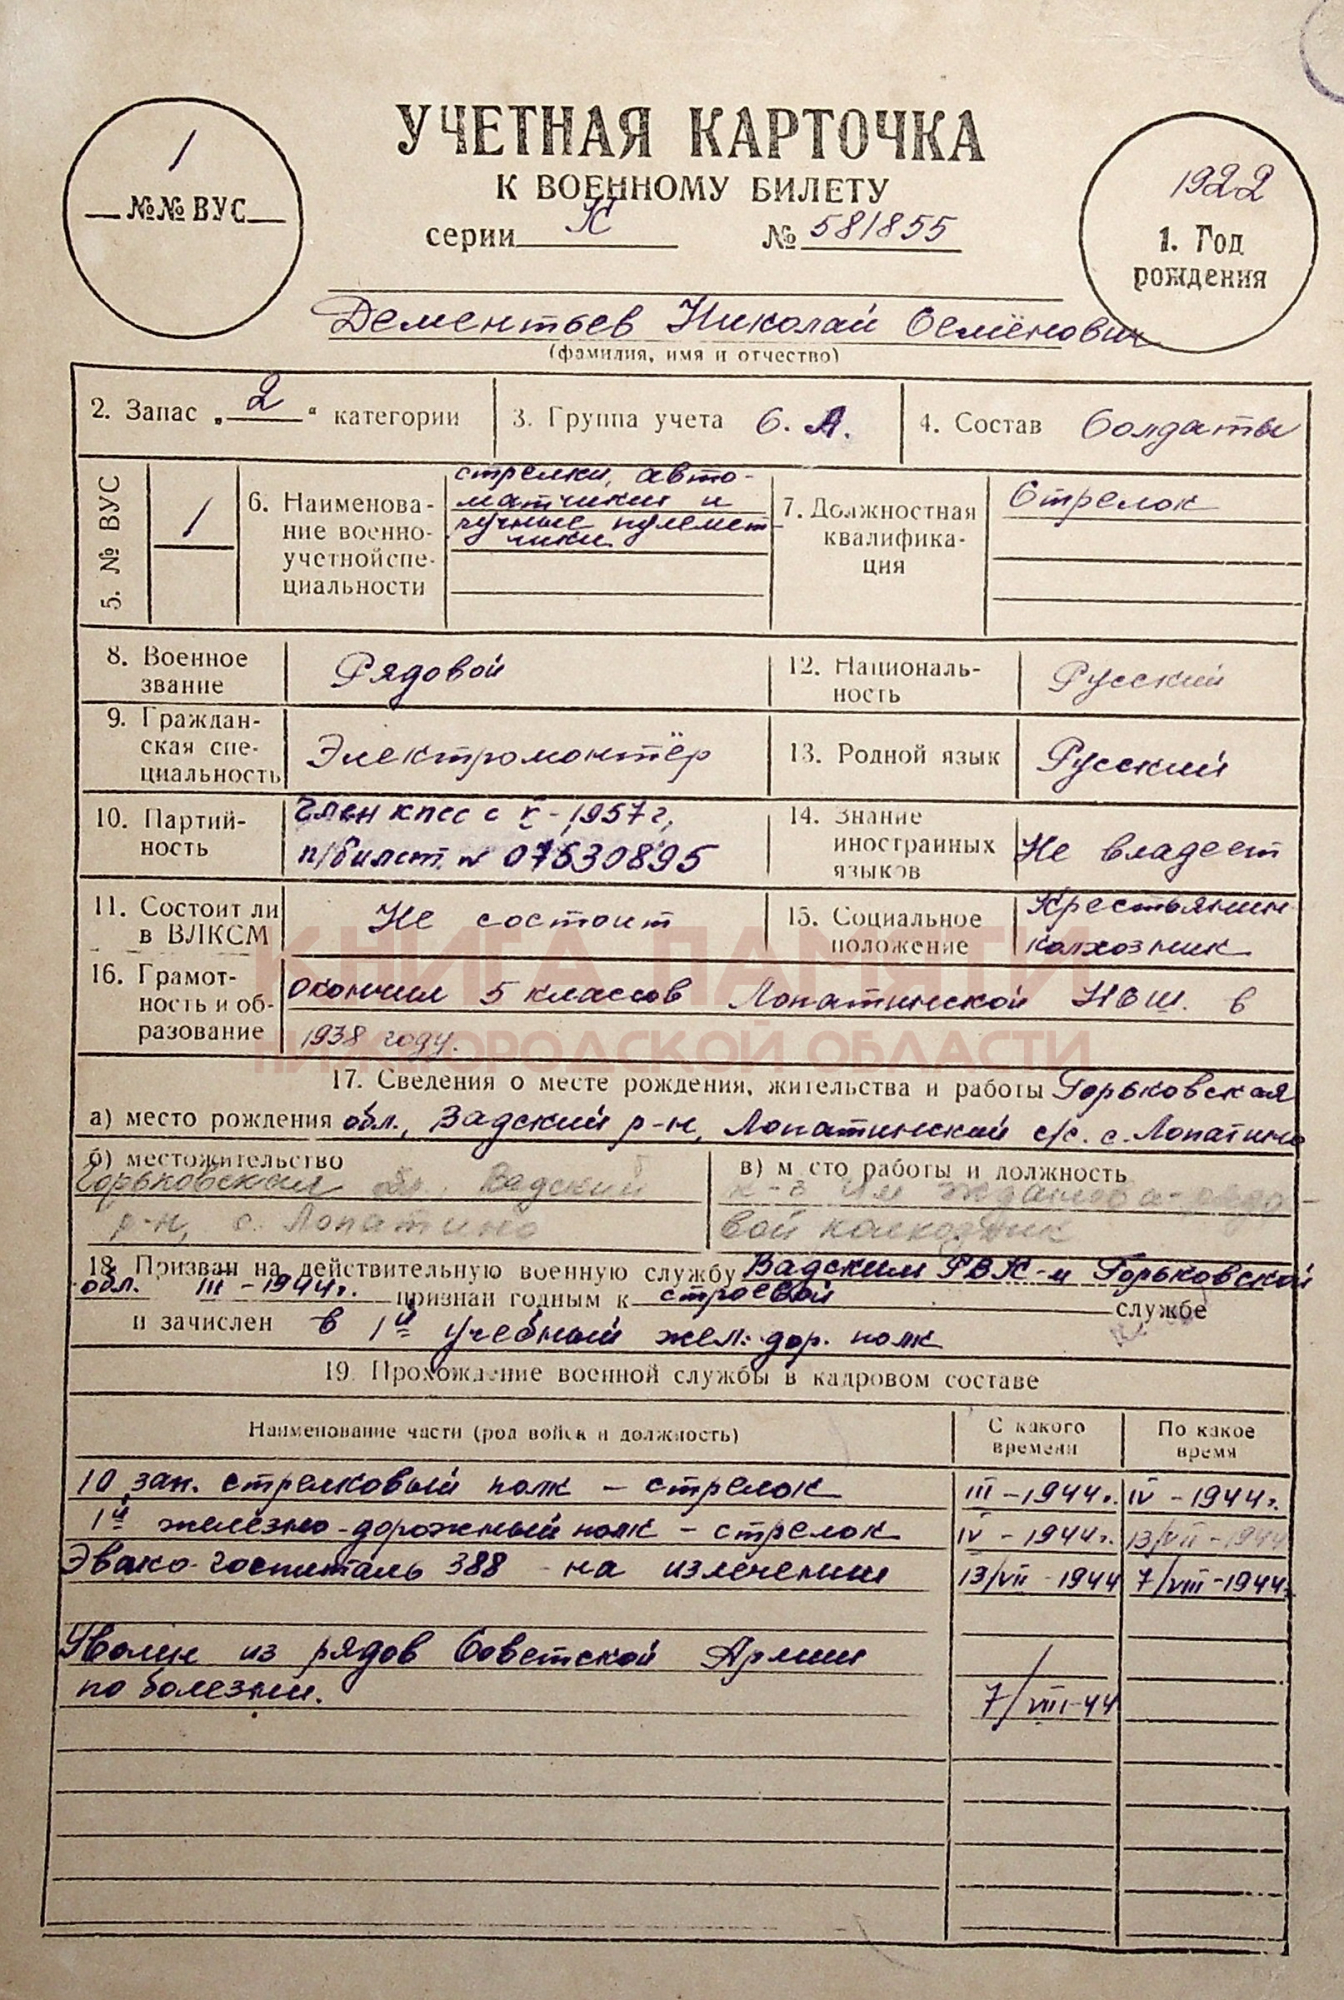 УЧЕТНАЯ КАРТОЧКА
К ВОЕННОМУ БИЛЕТУ
серии К № 581855
1
№№ ВУС
1922
1. Год
рождения
Дементьев Николай Семёнович
(фамилия, имя и отчество)
2. Запас „2“ категории
3. Группа учета С. А.
4. Состав Солдаты
5. № ВУС
1
6. Наименова-
ние военно-
учетной спе-
циальности
стрелки, авто-
матчики и
ручные пулемет
чики
7. Должностная
квалифика-
ция
Стрелок
8. Военное
звание
Рядовой
12. Националь-
ность
Русский
9. Граждан-
ская спе-
циальность
Электромонтёр
13. Родной язык
Русский
10. Партий-
ность
Член кпсс с X-1957 г,
п/билет № 07530895
14. Знание
иностранных
языков
Не владеет
11. Состоит ли
в ВЛКСМ
Не состоит
15. Социальное
положение
Крестьянин-
колхозник
КНИГА ПАМЯТИ
НИЖЕГОРОДСКОЙ ОБЛАСТИ
16. Грамот-
ность и об-
разование
окончил 5 классов Лопатинской НСШ. в
1938 году.
17. Сведения о месте рождения, жительства и работы Горьковская
а) место рождения обл., Вадский р-н, Лопатинский с/с. с. Лопатино
б) местожительство
Горьковская обл. Вадский
р-н, с. Лопатино
в) м сто работы и должность
к-з им Жданова-рядо-
вой колхозник
18. Призван на действительную военную службу Вадским РВК-м Горьковской
обл. III-1944г. признан годным к строевой службе
и зачислен в 1й учебный жел.-дор. полк
19. Прохождение военной службы в кадровом составе
Наименование части (род войск и должность)
С какого
времени
По какое
время
10 зап. стрелковый полк - стрелок III-1944г. IV-1944г.
1й железно-дорожный полк - стрелок IV-1944г. 13/VII-1944
Эвако-госпиталь 388 - на излечении 13/VII-1944 7/VIII-1944г.
Уволен из рядов Советской Армии
по болезни. 7/VIII-44